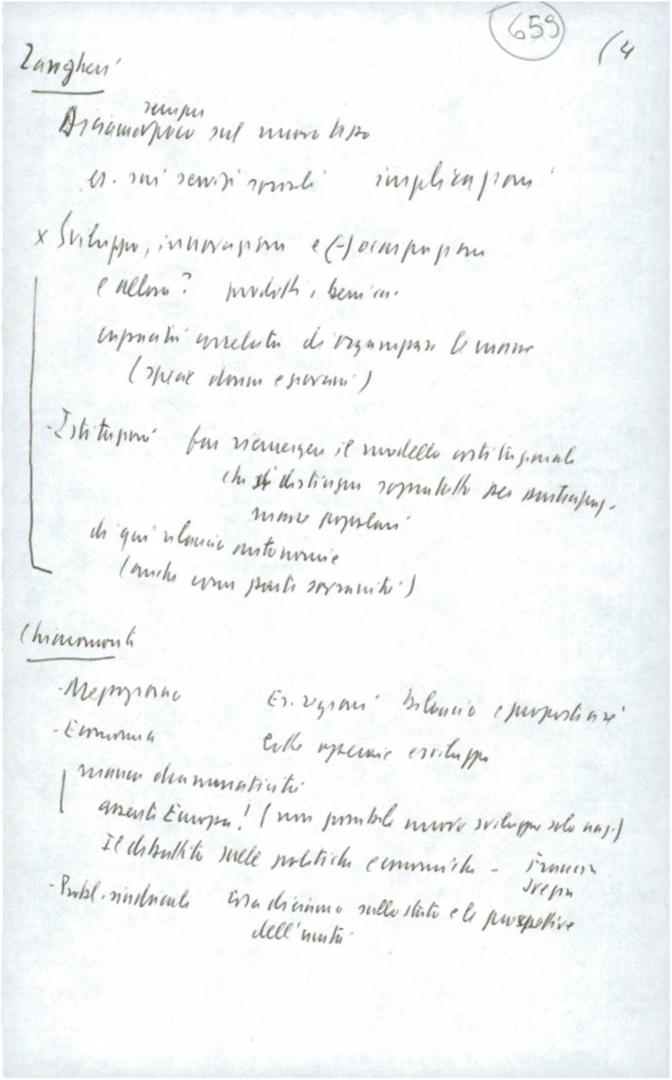 659
(4
Zangheri
sempre
Diciamo poco sul nuovo
es. sui servizi sociali implicazioni
x Sviluppo, innovazioni e (-) occupazioni
e allora? prodotti,
capacità correlata di organizzare le masse
(specie donne e giovani)
- Istituzioni far riemergere il modello costituzionale
che si distingue soprattutto per
masse popolari
di qui rilancio autonomie
(anche come parti sovranità)
Chiaromonte
- Mezzogiorno Es. regioni bilancio e proposti
- Economia sulle e sviluppo
manca drammaticità
assente Europa! (non possibile nuovo sviluppo solo naz.)
Il dibattito sulle politiche economiche - Francia
Svezia
- Probl. sindacale cosa diciamo sullo stato e le prospettive
dell'unità